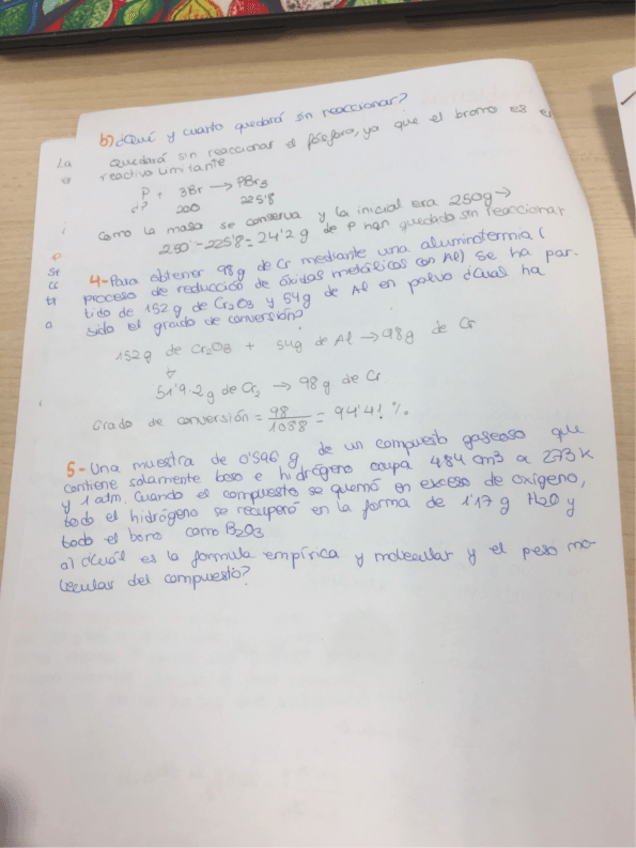 b) ¿Qué y cuanto quedará sin reaccionar?
Quedará sin reaccionar el fósforo, ya que el bromo es el
reactivo limitante
P + 3Br → PBr3
¿? 200 225'8
Como la masa se conserva y la inicial era 250g →
250 - 225'8 = 24'2 g de P han quedado sin reaccionar
4- Para obtener 98g de Cr mediante una aluminotermia (
proceso de reducción de óxidos metálicos con Al) se ha par-
tido de 152 g de Cr2O3 y 54g de Al en polvo ¿Cual ha
sido el grado de conversión?
152g de Cr2O3 + 54g de Al → 98g de Cr
51'9·2g de Cr2 → 98 g de Cr
Grado de conversión = 98/1038 = 94'41 %.
5- Una muestra de 0'596 g de un compuesto gaseoso que
contiene solamente boro e hidrógeno ocupa 484 cm3 a 273K
y 1 atm. Cuando el compuesto se quemó en exceso de oxígeno,
todo el hidrógeno se recuperó en la forma de 1'17 g H2O y
todo el boro como B2O3
a) ¿Cuál es la formula empírica y molecular y el peso mo-
lecular del compuesto?